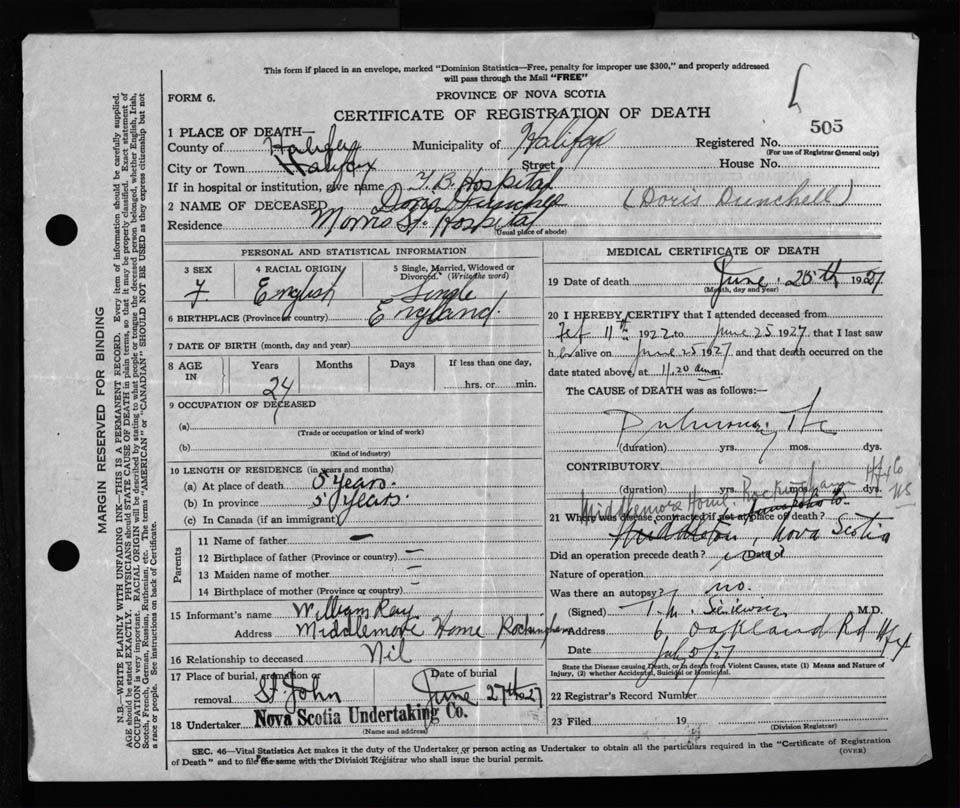 This form if placed in an envelope, marked "Dominion Statistics—Free, penalty for improper use $300," and properly addressed
will pass through the Mail "FREE"
FORM 6.
PROVINCE OF NOVA SCOTIA
CERTIFICATE OF REGISTRATION OF DEATH
505
1 PLACE OF DEATH—
County of Halifax Municipality of Halifax Registered No.
(For use of Registrar General only)
City or Town Halifax Street House No.
If in hospital or institution, give name T. B. Hospital
2 NAME OF DECEASED Doris (Doris Dunchell)
Residence Morris St. Hospital
(Usual place of abode)
PERSONAL AND STATISTICAL INFORMATION
3 SEX 4 RACIAL ORIGIN 5 Single, Married, Widowed or Divorced. (Write the word)
F English Single
6 BIRTHPLACE (Province or country) England.
7 DATE OF BIRTH (month, day and year)
8 AGE IN Years Months Days If less than one day,
24 hrs. or min.
9 OCCUPATION OF DECEASED
(a)
(Trade or occupation or kind of work)
(b)
(Kind of industry)
10 LENGTH OF RESIDENCE (in years and months)
(a) At place of death 5 years.
(b) In province 5 years.
(c) In Canada (if an immigrant)
Parents
11 Name of father —
12 Birthplace of father (Province or country) —
13 Maiden name of mother —
14 Birthplace of mother (Province or country) —
15 Informant's name William Ray
Address Middlemore Home Rockingham
16 Relationship to deceased Nil
17 Place of burial, cremation or removal St John Date of burial June 27th 1927
18 Undertaker Nova Scotia Undertaking Co.
(Name and address)
MEDICAL CERTIFICATE OF DEATH
19 Date of death June 25th 1927
(Month, day and year)
20 I HEREBY CERTIFY that I attended deceased from
Feb 11th 1922 to June 25 1927, that I last saw
h er alive on June 25 1927 and that death occurred on the
date stated above, at 11.20 a.m.
The CAUSE OF DEATH was as follows:—
Pulmonary Tbc
(duration) yrs. mos. dys.
CONTRIBUTORY
(duration) yrs. mos. dys.
Middlemore Home Rockingham Hfx Co NS
21 Where was disease contracted if not at place of death?
Middleton, Nova Scotia
Did an operation precede death? no Date of
Nature of operation
Was there an autopsy? no.
(Signed) M.D.
Address 6 Oakland Rd Hfx
Date July 5/27
State the Disease causing Death, or in death from Violent Causes, state (1) Means and Nature of
Injury, (2) whether Accidental, Suicidal or Homicidal.
22 Registrar's Record Number
23 Filed 19
(Division Registrar)
SEC. 46—Vital Statistics Act makes it the duty of the Undertaker or person acting as Undertaker to obtain all the particulars required in the "Certificate of Registration
of Death" and to file the same with the Division Registrar who shall issue the burial permit.
(OVER)
MARGIN RESERVED FOR BINDING
N.B.—WRITE PLAINLY WITH UNFADING INK—THIS IS A PERMANENT RECORD. Every item of information should be carefully supplied.
AGE should be stated EXACTLY. PHYSICIANS should STATE CAUSE OF DEATH in plain terms, so that it may be properly classified. Exact statement of
OCCUPATION is very important. RACIAL ORIGIN will be described by stating to what people or tongue the deceased person belonged, whether English, Irish,
Scotch, French, German, Russian, Ruthenian, etc. The terms "AMERICAN" or "CANADIAN" SHOULD NOT BE USED as they express citizenship but not
a race or people. See instructions on back of Certificate.